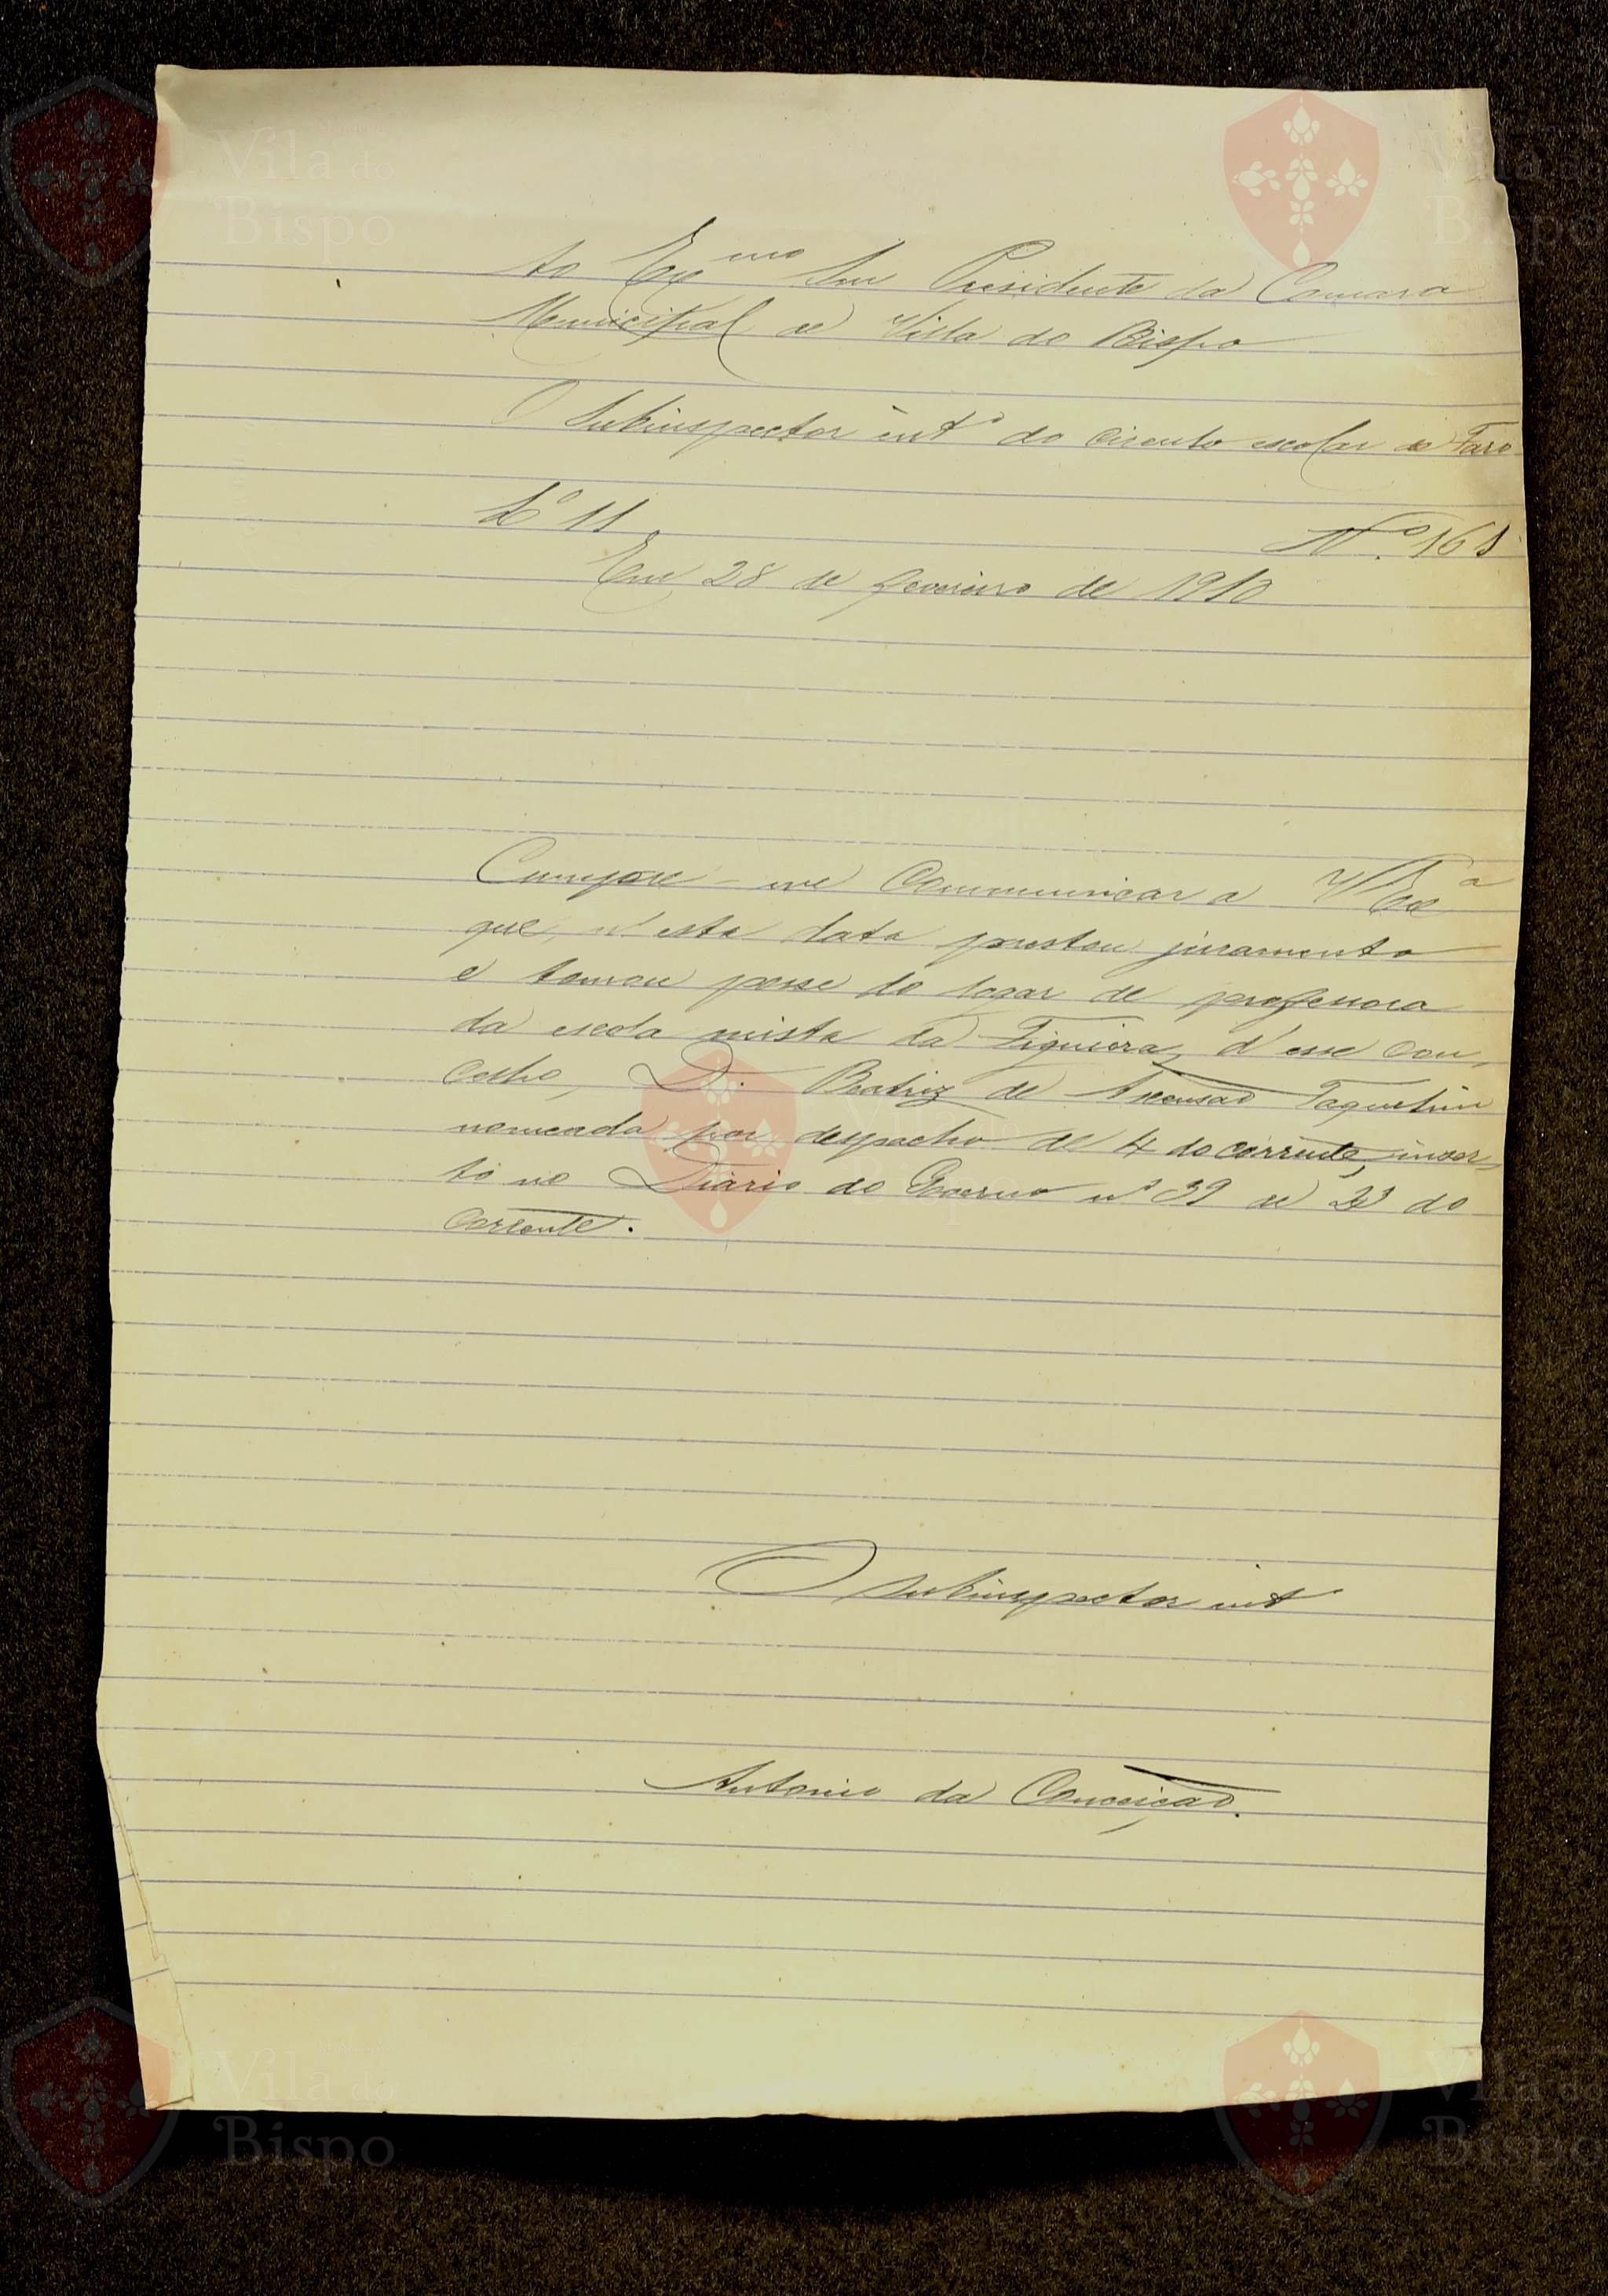 Ao Ex.mo Snr Presidente da Camara
Municipal de Villa do Bispo
O Subinspector int.º do circulo escolar de Faro
L.º 11
N.º 161
Em 28 de fevereiro de 1910
Cumpre-me communicar a V. Ex.ª
que, n'esta data prestou juramento
e tomou posse do logar de professora
da escola mixta da Figueira, d'esse con-
celho, D. Beatriz de Ascensão
nomeada por despacho de 4 do corrente, inser-
to no Diario do Governo nº 39 de do
corrente.
O subinspector int
Antonio da Conceição.
Vila do
Bispo
Vila do
Bispo
Vila do
Bispo